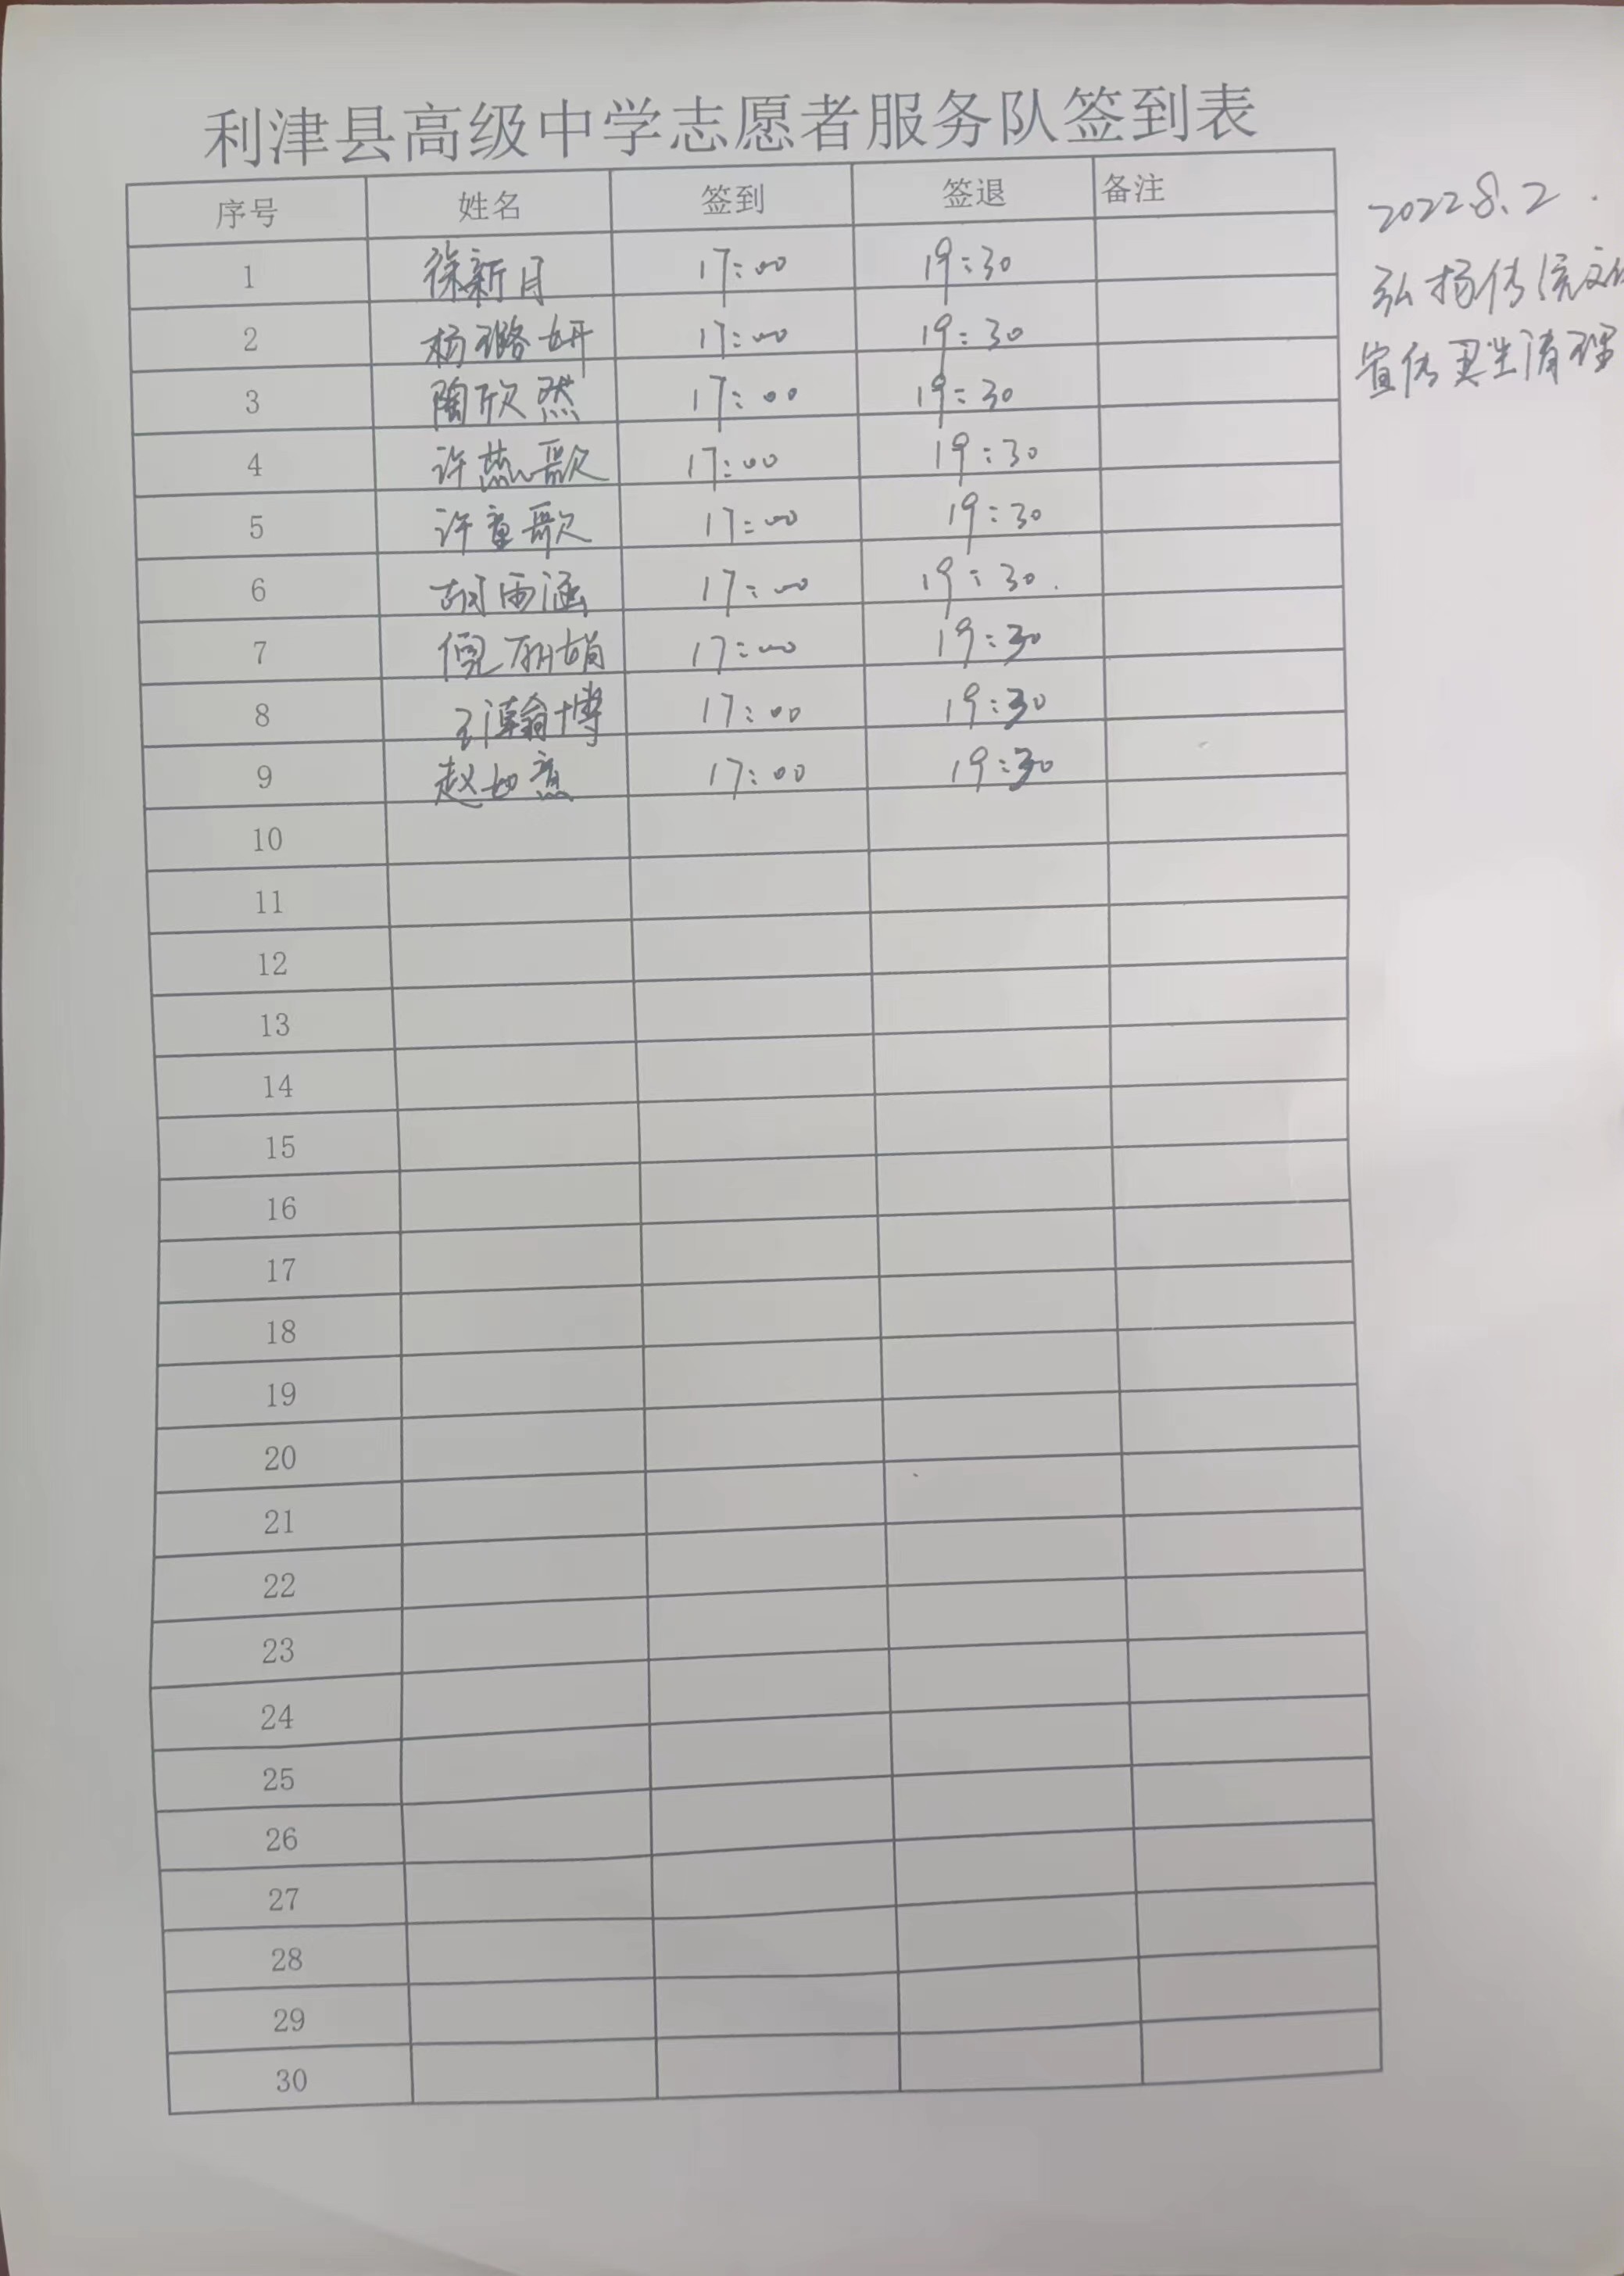 利津县高级中学志愿者服务队签到表
序号 姓名 签到 签退 备注
2022.8.2.
弘扬传统文化
宣传卫生清理
1 徐新月 17:00 19:30
2 杨璐妍 17:00 19:30
3 陶欣然 17:00 19:30
4 许燕歌 17:00 19:30
5 许童歌 17:00 19:30
6 胡雨涵 17:00 19:30.
7 倪丽娟 17:00 19:30
8 王瀚博 17:00 19:30
9 赵如意 17:00 19:30
10
11
12
13
14
15
16
17
18
19
20
21
22
23
24
25
26
27
28
29
30